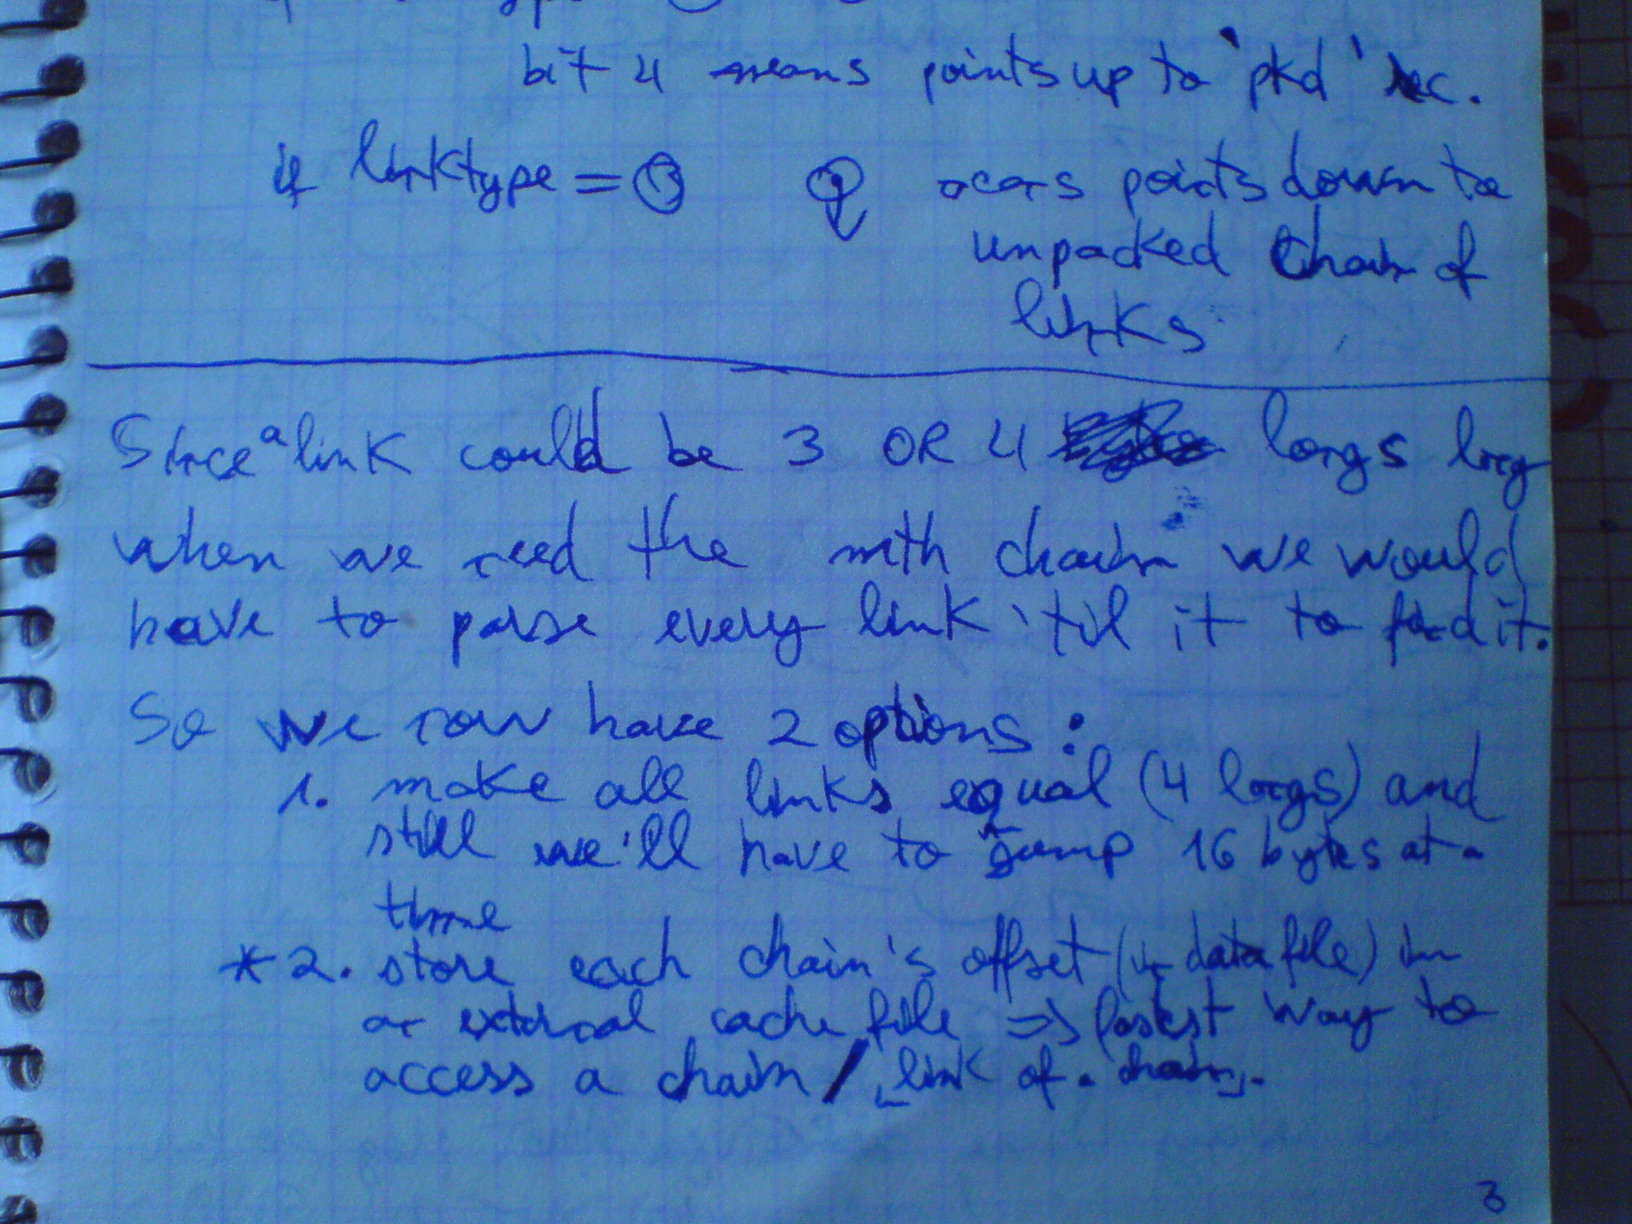 bit 4 means points up to 'pkd' rec.
if linktype = 3 means points down to
unpacked chain of
links
Since a link could be 3 OR 4 longs long
when we need the nth chain we would
have to parse every link 'til it to find it.
So we now have 2 options:
1. make all links equal (4 longs) and
still we'll have to jump 16 bytes at a
time
* 2. store each chain's offset (in data file) in
an external cache file => fastest way to
access a chain / link of a chain.
3